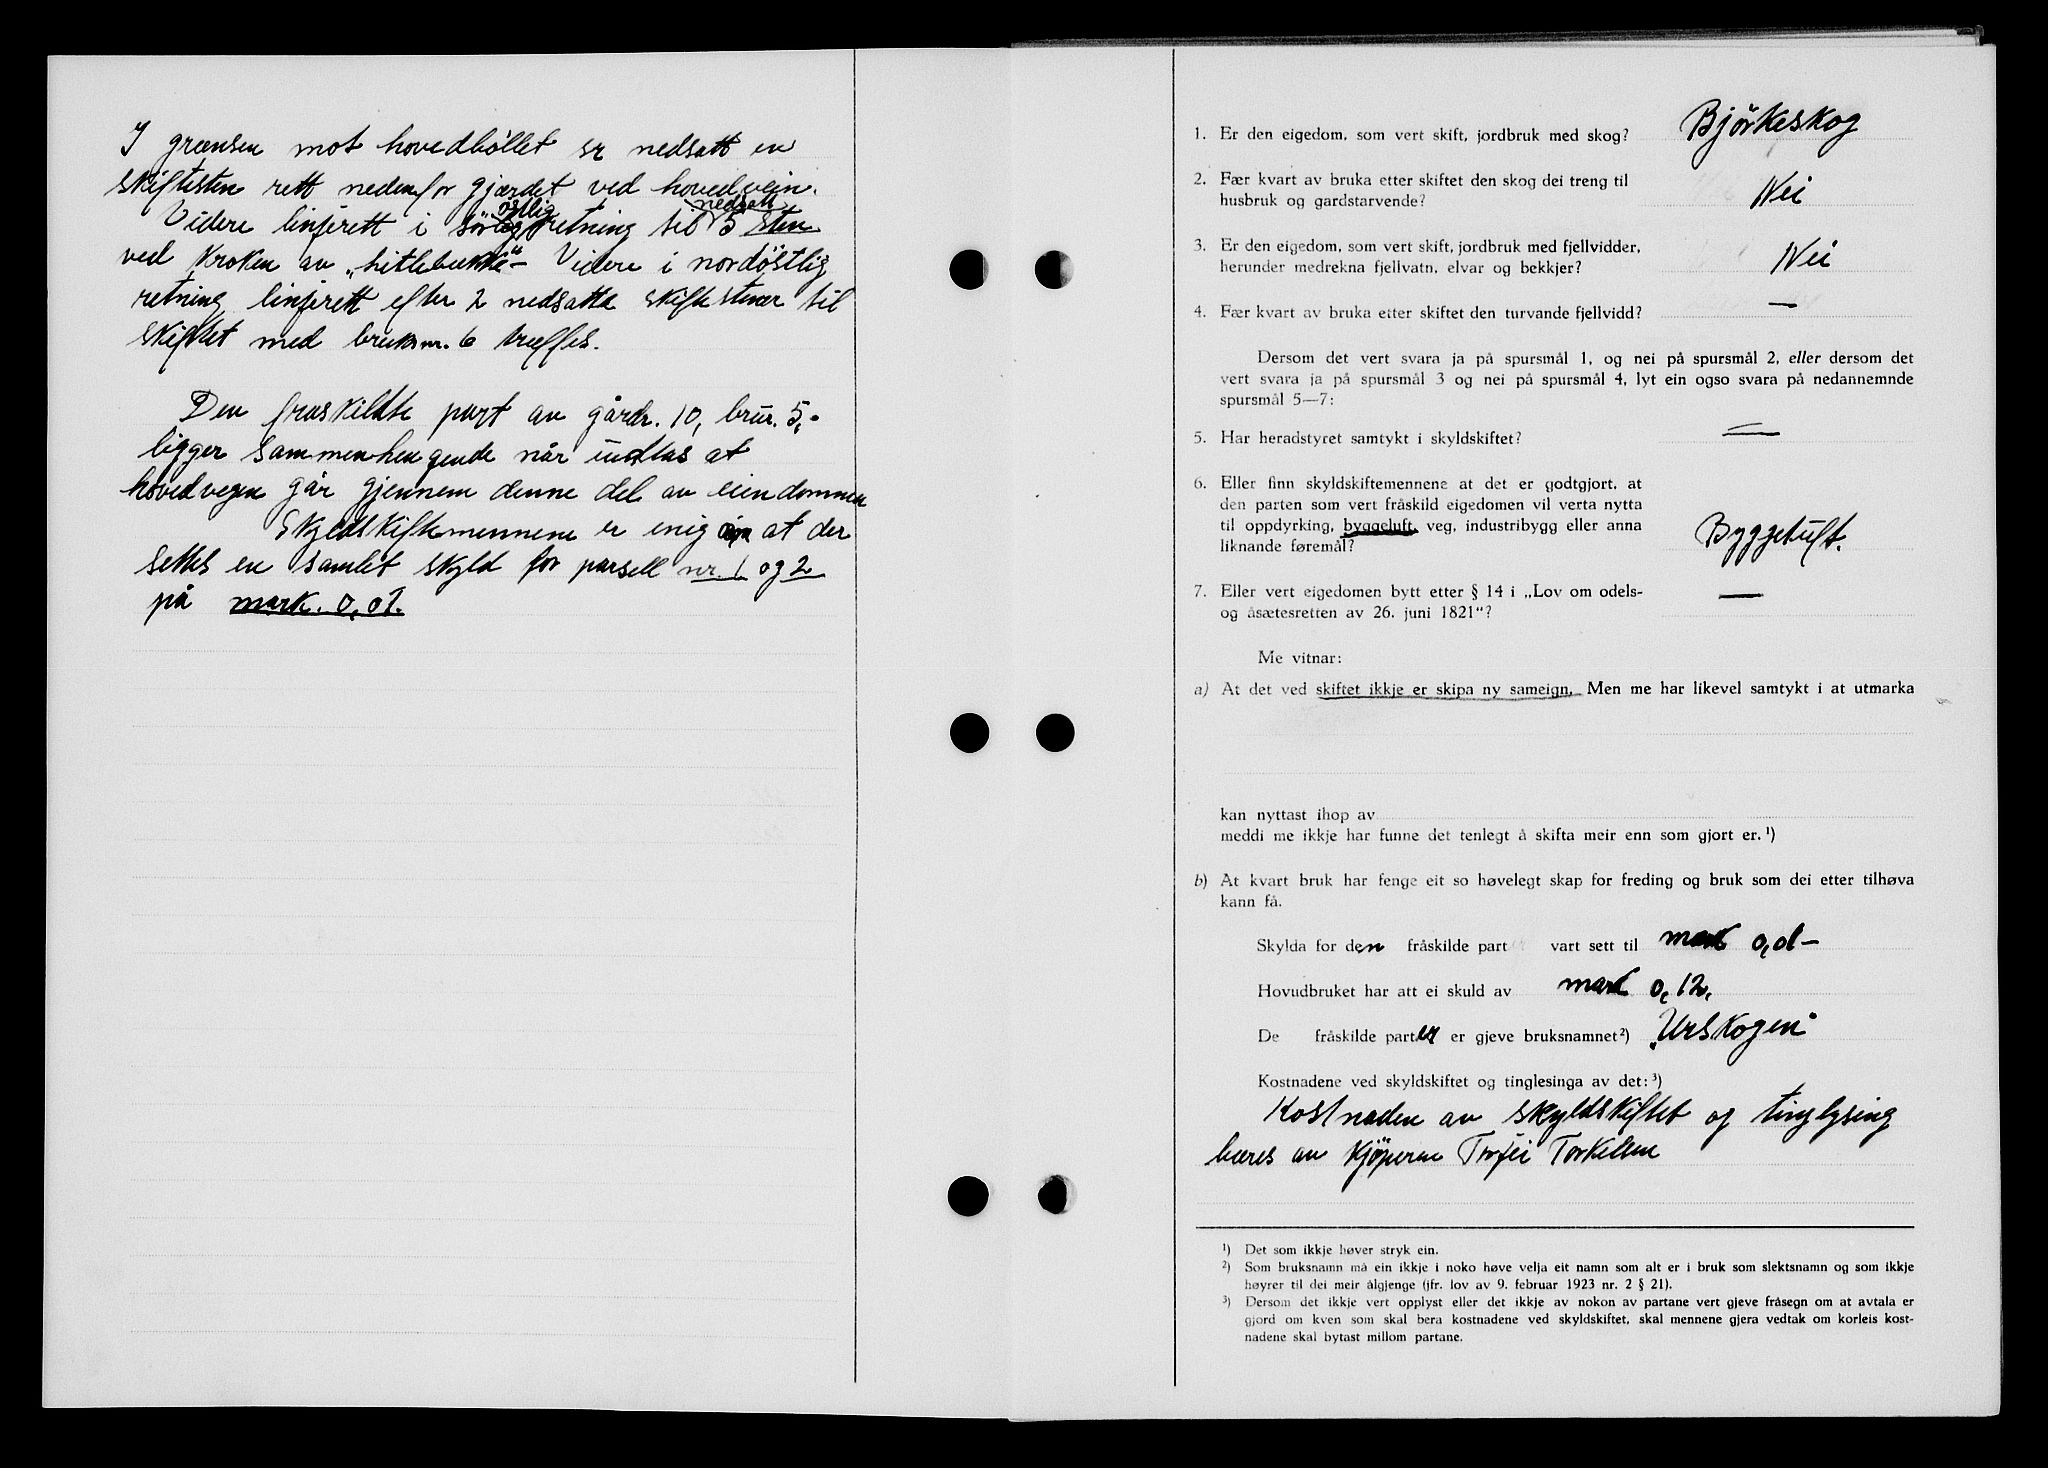 I grænsen mot hovedbøllet er nedsatt en
skiftesten rett nedenfor gjærdet ved hovedvein.
Videre linjerett i østlig retning til nedsatt 5 sten
ved kroken av „hitlebukke" - Videre i nordøstlig
retning linjerett efter 2 nedsatte skiftestener til
skiftet med bruksnr. 6 træffes.
Den fraskildte part av gårdr. 10, brur. 5,-
ligger sammenhengende når undtas at
hovedvegen går gjennem denne del av eiendommen
Skyldskiftemennene er enig om at der
settes en samlet skyld for parsell nr. 1 og 2
på mark. 0,01.
1. Er den eigedom, som vert skift, jordbruk med skog? Björkeskog
2. Fær kvart av bruka etter skiftet den skog dei treng til
husbruk og gardstarvende? Nei
3. Er den eigedom, som vert skift, jordbruk med fjellvidder,
herunder medrekna fjellvatn, elvar og bekkjer? Nei
4. Fær kvart av bruka etter skiftet den turvande fjellvidd? —
Dersom det vert svara ja på spursmål 1, og nei på spursmål 2, eller dersom det
vert svara ja på spursmål 3 og nei på spursmål 4, lyt ein ogso svara på nedannemnde
spursmål 5—7:
5. Har heradstyret samtykt i skyldskiftet? —
6. Eller finn skyldskiftemennene at det er godtgjort, at
den parten som vert fråskild eigedomen vil verta nytta
til oppdyrking, byggeluft, veg, industribygg eller anna
liknande føremål? Byggetuft.
7. Eller vert eigedomen bytt etter § 14 i „Lov om odels-
og åsætesretten av 26. juni 1821"? —
Me vitnar:
a) At det ved skiftet ikkje er skipa ny sameign. Men me har likevel samtykt i at utmarka
kan nyttast ihop av
meddi me ikkje har funne det tenlegt å skifta meir enn som gjort er.¹)
b) At kvart bruk har fenge eit so høvelegt skap for freding og bruk som dei etter tilhøva
kann få.
Skylda for den fråskilde part vart sett til mark 0,01—
Hovudbruket har att ei skuld av mark 0,12,
De fråskilde parter er gjeve bruksnamnet²) „Urskogen"
Kostnadene ved skyldskiftet og tinglesinga av det:³)
Kostnaden av skyldskiftet og tinglysing
bæres av kjøperen Torkelsen
¹) Det som ikkje høver stryk ein.
²) Som bruksnamn må ein ikkje i noko høve velja eit namn som alt er i bruk som slektsnamn og som ikkje
høyrer til dei meir ålgjenge (jfr. lov av 9. februar 1923 nr. 2 § 21).
³) Dersom det ikkje vert opplyst eller det ikkje av nokon av partane vert gjeve fråsegn om at avtala er
gjord om kven som skal bera kostnadene ved skyldskiftet, skal mennene gjera vedtak om korleis kost-
nadene skal bytast millom partane.